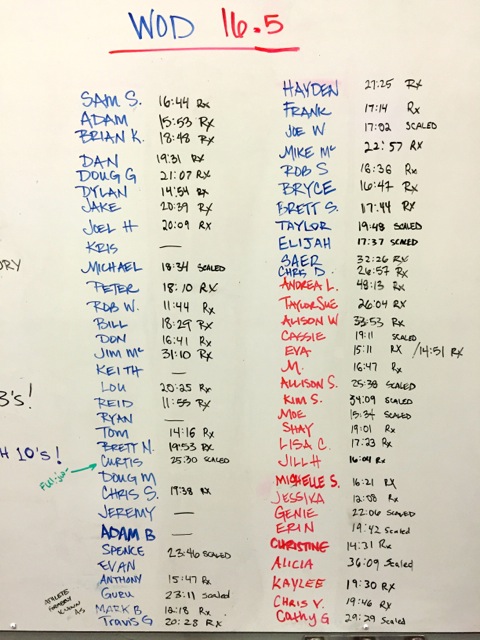 WOD 16.5
SAM S. 16:44 Rx
ADAM 15:53 Rx
BRIAN K. 18:48 Rx
DAN 19:31 Rx
DOUG G 21:07 Rx
DYLAN 14:54 Rx
JAKE 20:39 Rx
JOEL H 20:09 Rx
KRIS —
MICHAEL 18:34 SCALED
PETER 18:10 RX
ROB W. 11:44 Rx
BILL 18:29 Rx
DON 16:41 Rx
JIM Mc 31:10 Rx
KEITH —
LOU 20:25 Rx
REID 11:55 Rx
RYAN —
TOM 14:16 Rx
BRETT N. 19:53 Rx
CURTIS 25:30 SCALED
DOUG M
CHRIS S. 17:38 RX
JEREMY —
ADAM B —
SPENCE 23:46 SCALED
EVAN
ANTHONY 15:47 Rx
GURU 23:11 scaled
MARK B 16:18 Rx
Trans G 20:28 RX
HAYDEN 27:25 Rx
FRANK 17:14 Rx
JOE W 17:02 SCALED
MIKE Mc 22:57 RX
ROB S 16:36 Rx
BRYCE 16:47 Rx
BRETT S. 17:44 Rx
TAYLOR 19:48 SCALED
ELIJAH 17:37 SCALED
SAER 32:26 Rx
CHRIS D. 26:57 Rx
ANDREA L. 48:13 Rx
TAYLOR SUE 26:04 RX
ALISON W 33:53 Rx
CASSIE 19:11 SCALED
EVA 15:11 RX /14:51 RX
M. 16:47 Rx
ALLISON S. 25:38 SCALED
KIM S. 34:09 SCALED
MOE 15:34 SCALED
SHAY 19:01 Rx
LISA C. 17:23 Rx
JILL H 16:04 Rx
MICHELLE S. 16:21 RX
JESSIKA 12:58 Rx
GENIE 22:06 SCALED
ERIN 19:42 Scaled
CHRISTINE 14:31 Rx
ALICIA 36:09 Scaled
KAYLEE 19:30 Rx
CHRIS V. 19:46 Rx
Cathy G 29:29 Scaled
ORY
3's!
H 10's!
ATHLETE
FORMERLY
KNOWN
AS